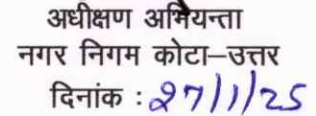 अधीक्षण अभियन्ता
नगर निगम कोटा–उत्तर
दिनांक : 27/1/25